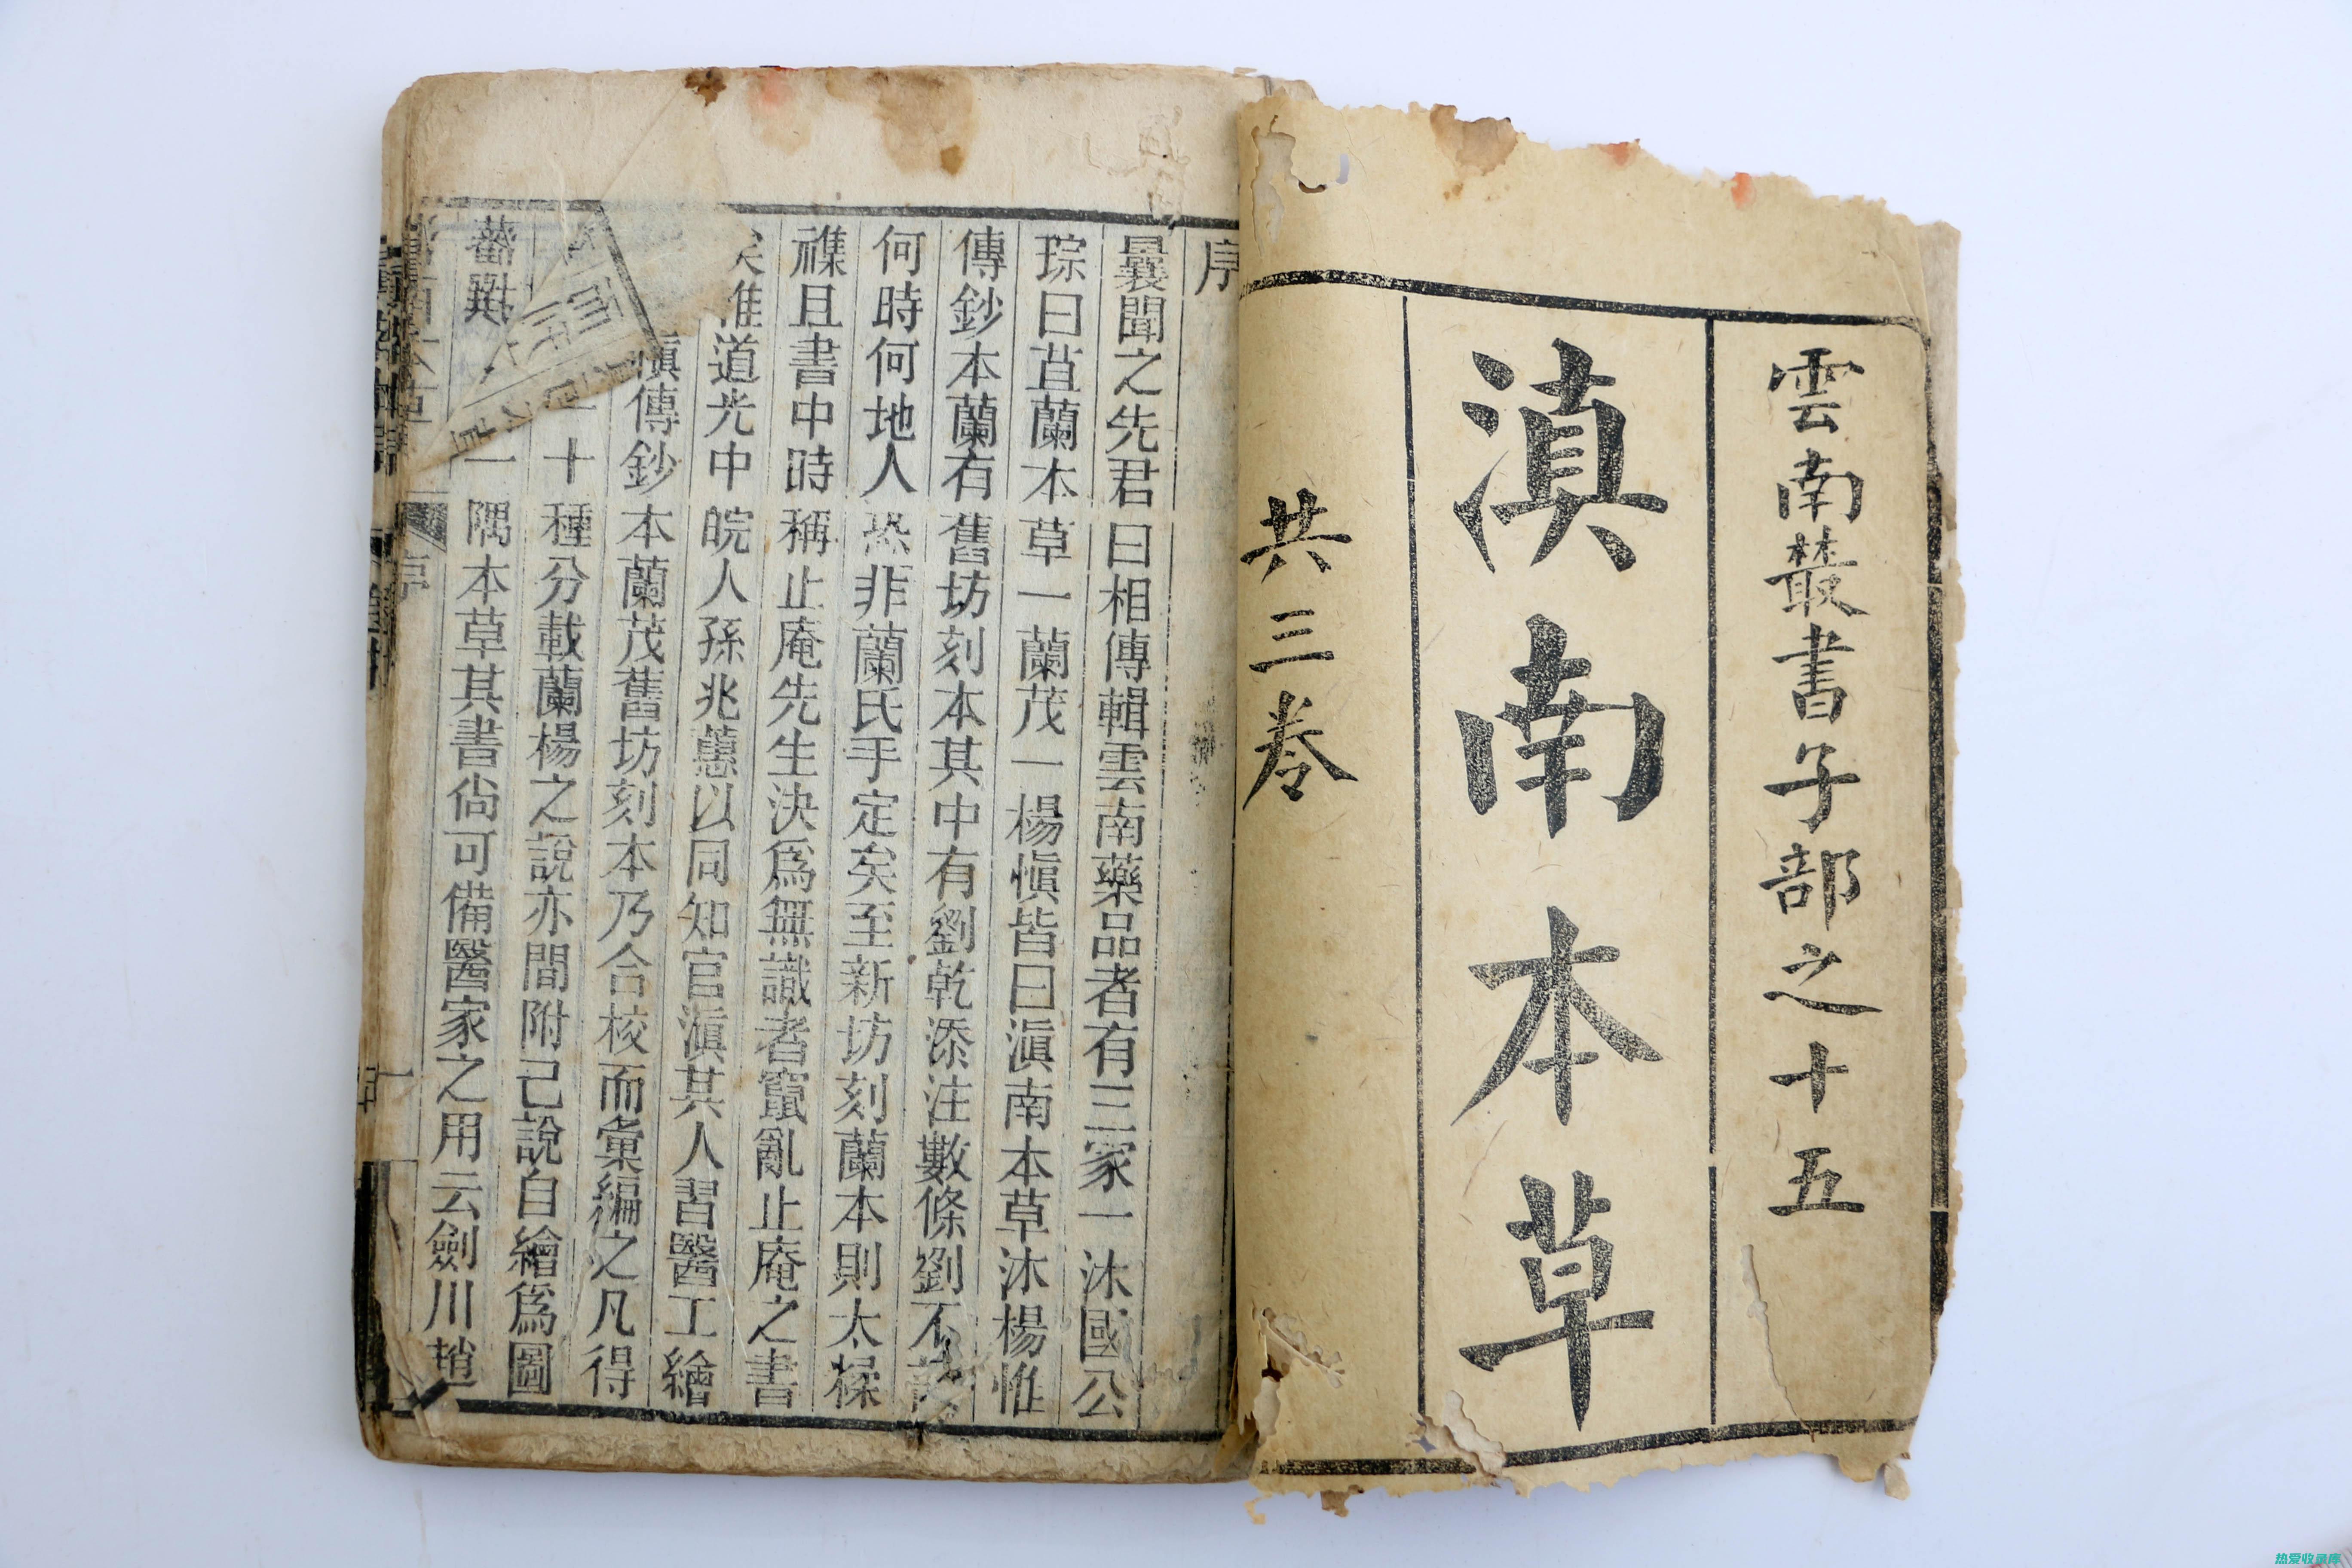 雲南叢書子部之十五
滇南本草
共三卷
序
曩聞之先君曰相傳輯雲南藥品者有三家一沐國公
琮曰苴蘭本草一蘭茂一楊慎皆曰滇南本草沐楊惟
傳鈔本蘭有舊坊刻本其中有劉乾添注數條劉不
何時何地人恐非蘭氏手定矣至新坊刻蘭本則太糅
襍且書中時稱止庵先生決爲無識者竄亂止庵之書
矣惟道光中皖人孫兆蕙以同知官滇其人習醫工繪
滇傳鈔本蘭茂舊坊刻本乃合校而彙編之凡得
十種分載蘭楊之說亦間附己說自繪爲圖
一隅本草其書尙可備醫家之用云劍川趙
序
热爱收录库